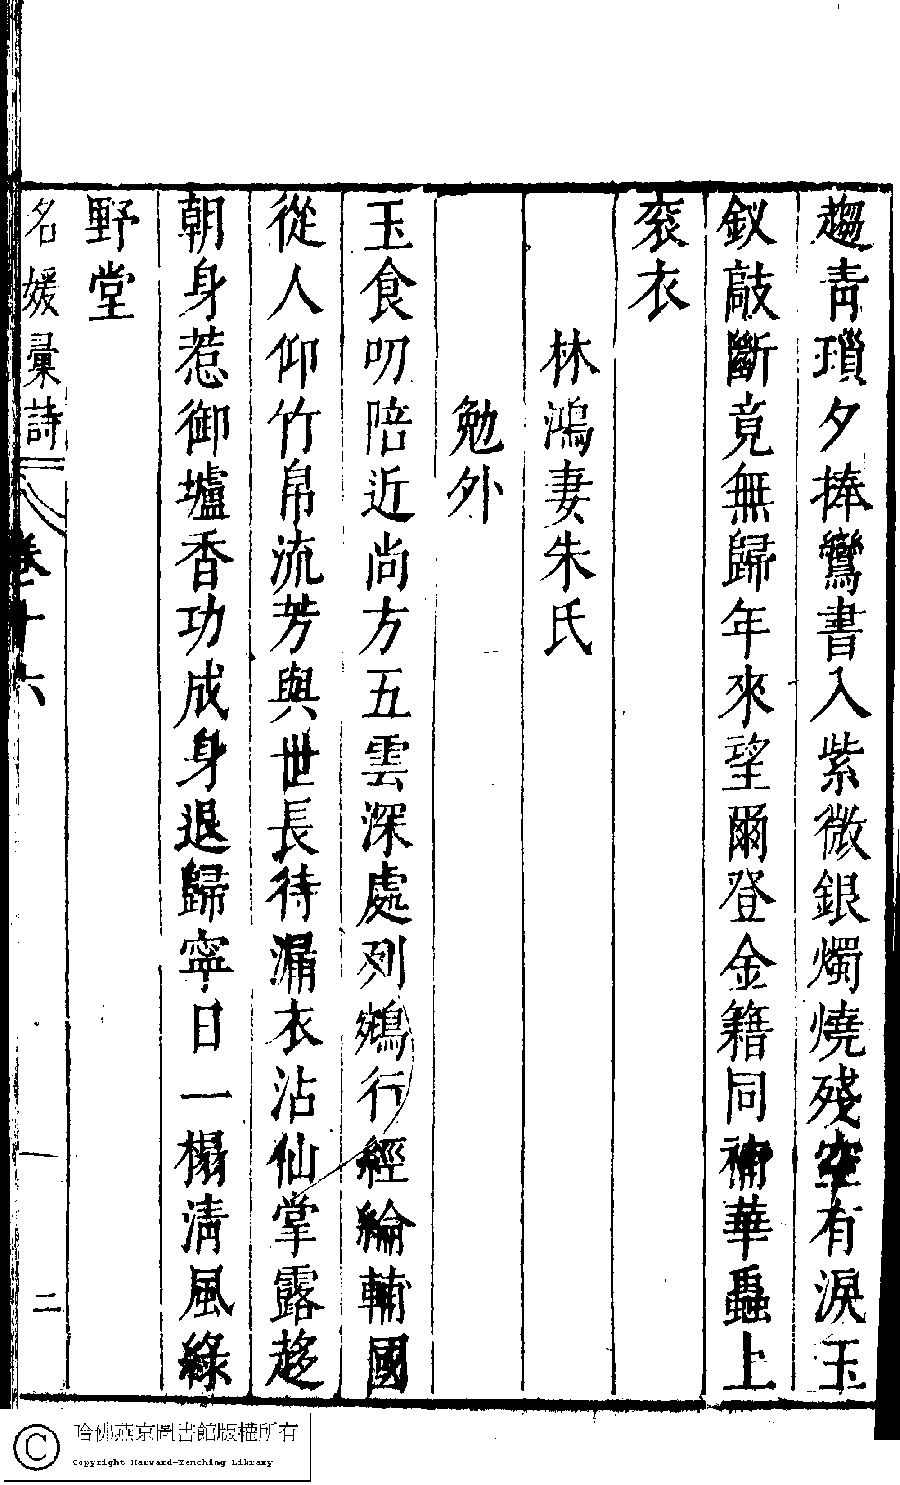 趨青瑣夕捧鸞書入紫微銀燭燒殘空有淚玉
釵敲斷竟無歸年來望爾登金籍同補華蟲上
袞衣
林鴻妻朱氏
勉外
玉食叨陪近尚方五雲深處列鵷行經綸輔國
從人仰竹帛流芳與世長待漏衣沾仙掌露趍
朝身惹御爐香功成身退歸寧日一榻清風綠
野堂
名媛彙詩 卷十六 二
哈佛燕京圖書館版權所有
Copyright Harvard-Yenching Library